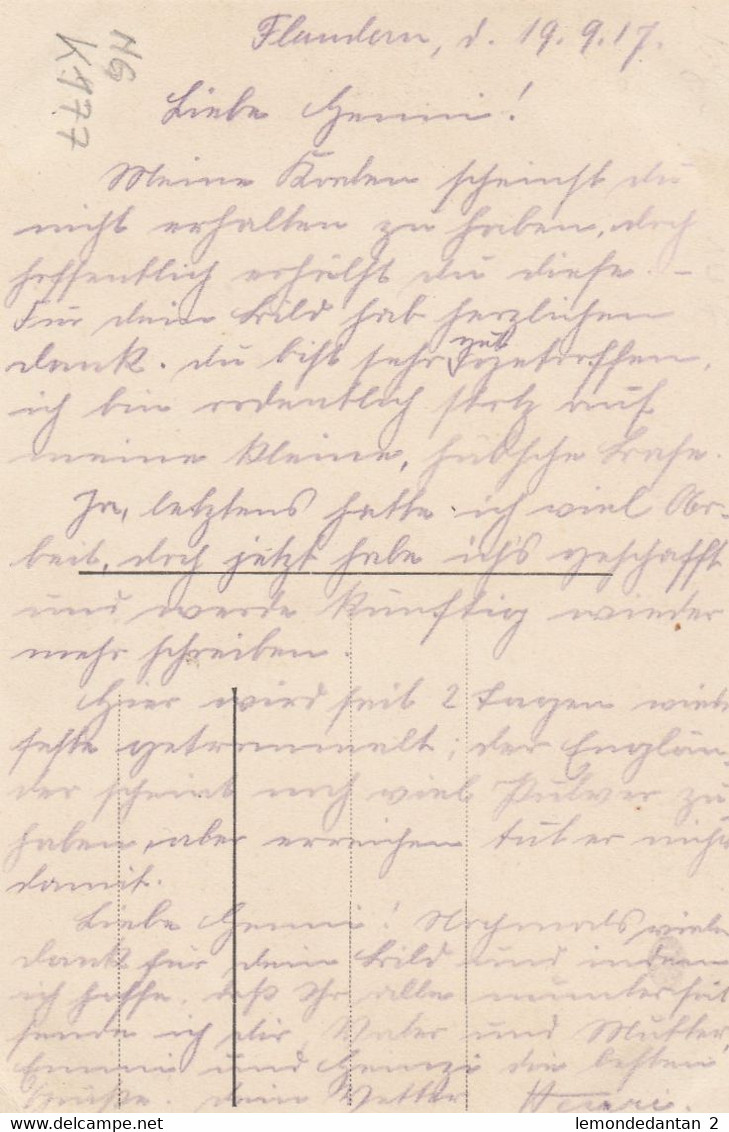 Flandern, d. 19.9.17.
HG
K 177
Liebe Henni!
Meine Karten scheinst du
nicht erhalten zu haben, doch
hoffentlich erhälst du diese. –
Für dein Bild hab herzlichen
dank. du bist sehr gut getroffen,
ich bin ordentlich stolz auf
meine kleine, hübsche Base.
Ja, letztens hatte ich viel Ar-
beit, doch jetzt habe ich's geschafft
und werde künftig wieder
mehr schreiben.
Hier wird seit 2 Tagen wied
feste getrommelt; der Englän-
der scheint noch viel Pulver zu
haben, aber erreichen tut er nichts
damit.
Liebe Henni! Nochmals viele
dank für dein Bild und indem
ich hoffe, daß Ihr alle munter seit
sende ich dir, Vater und Mutter,
Emmi und Heinzi die besten
Grüße. dein Vetter Henri.
lemondedantan 2